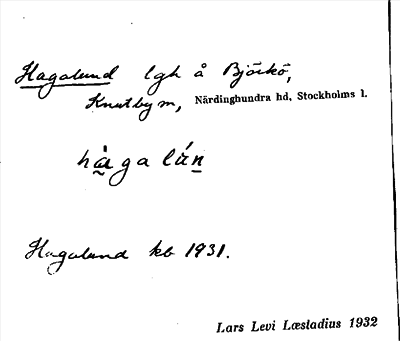 Hagalund lgh å Björkö,
Knutby sn, Närdinghundra hd, Stockholms l.
hà̰ga lún̲
Hagalund kb 1931.
Lars Levi Læstadius 1932